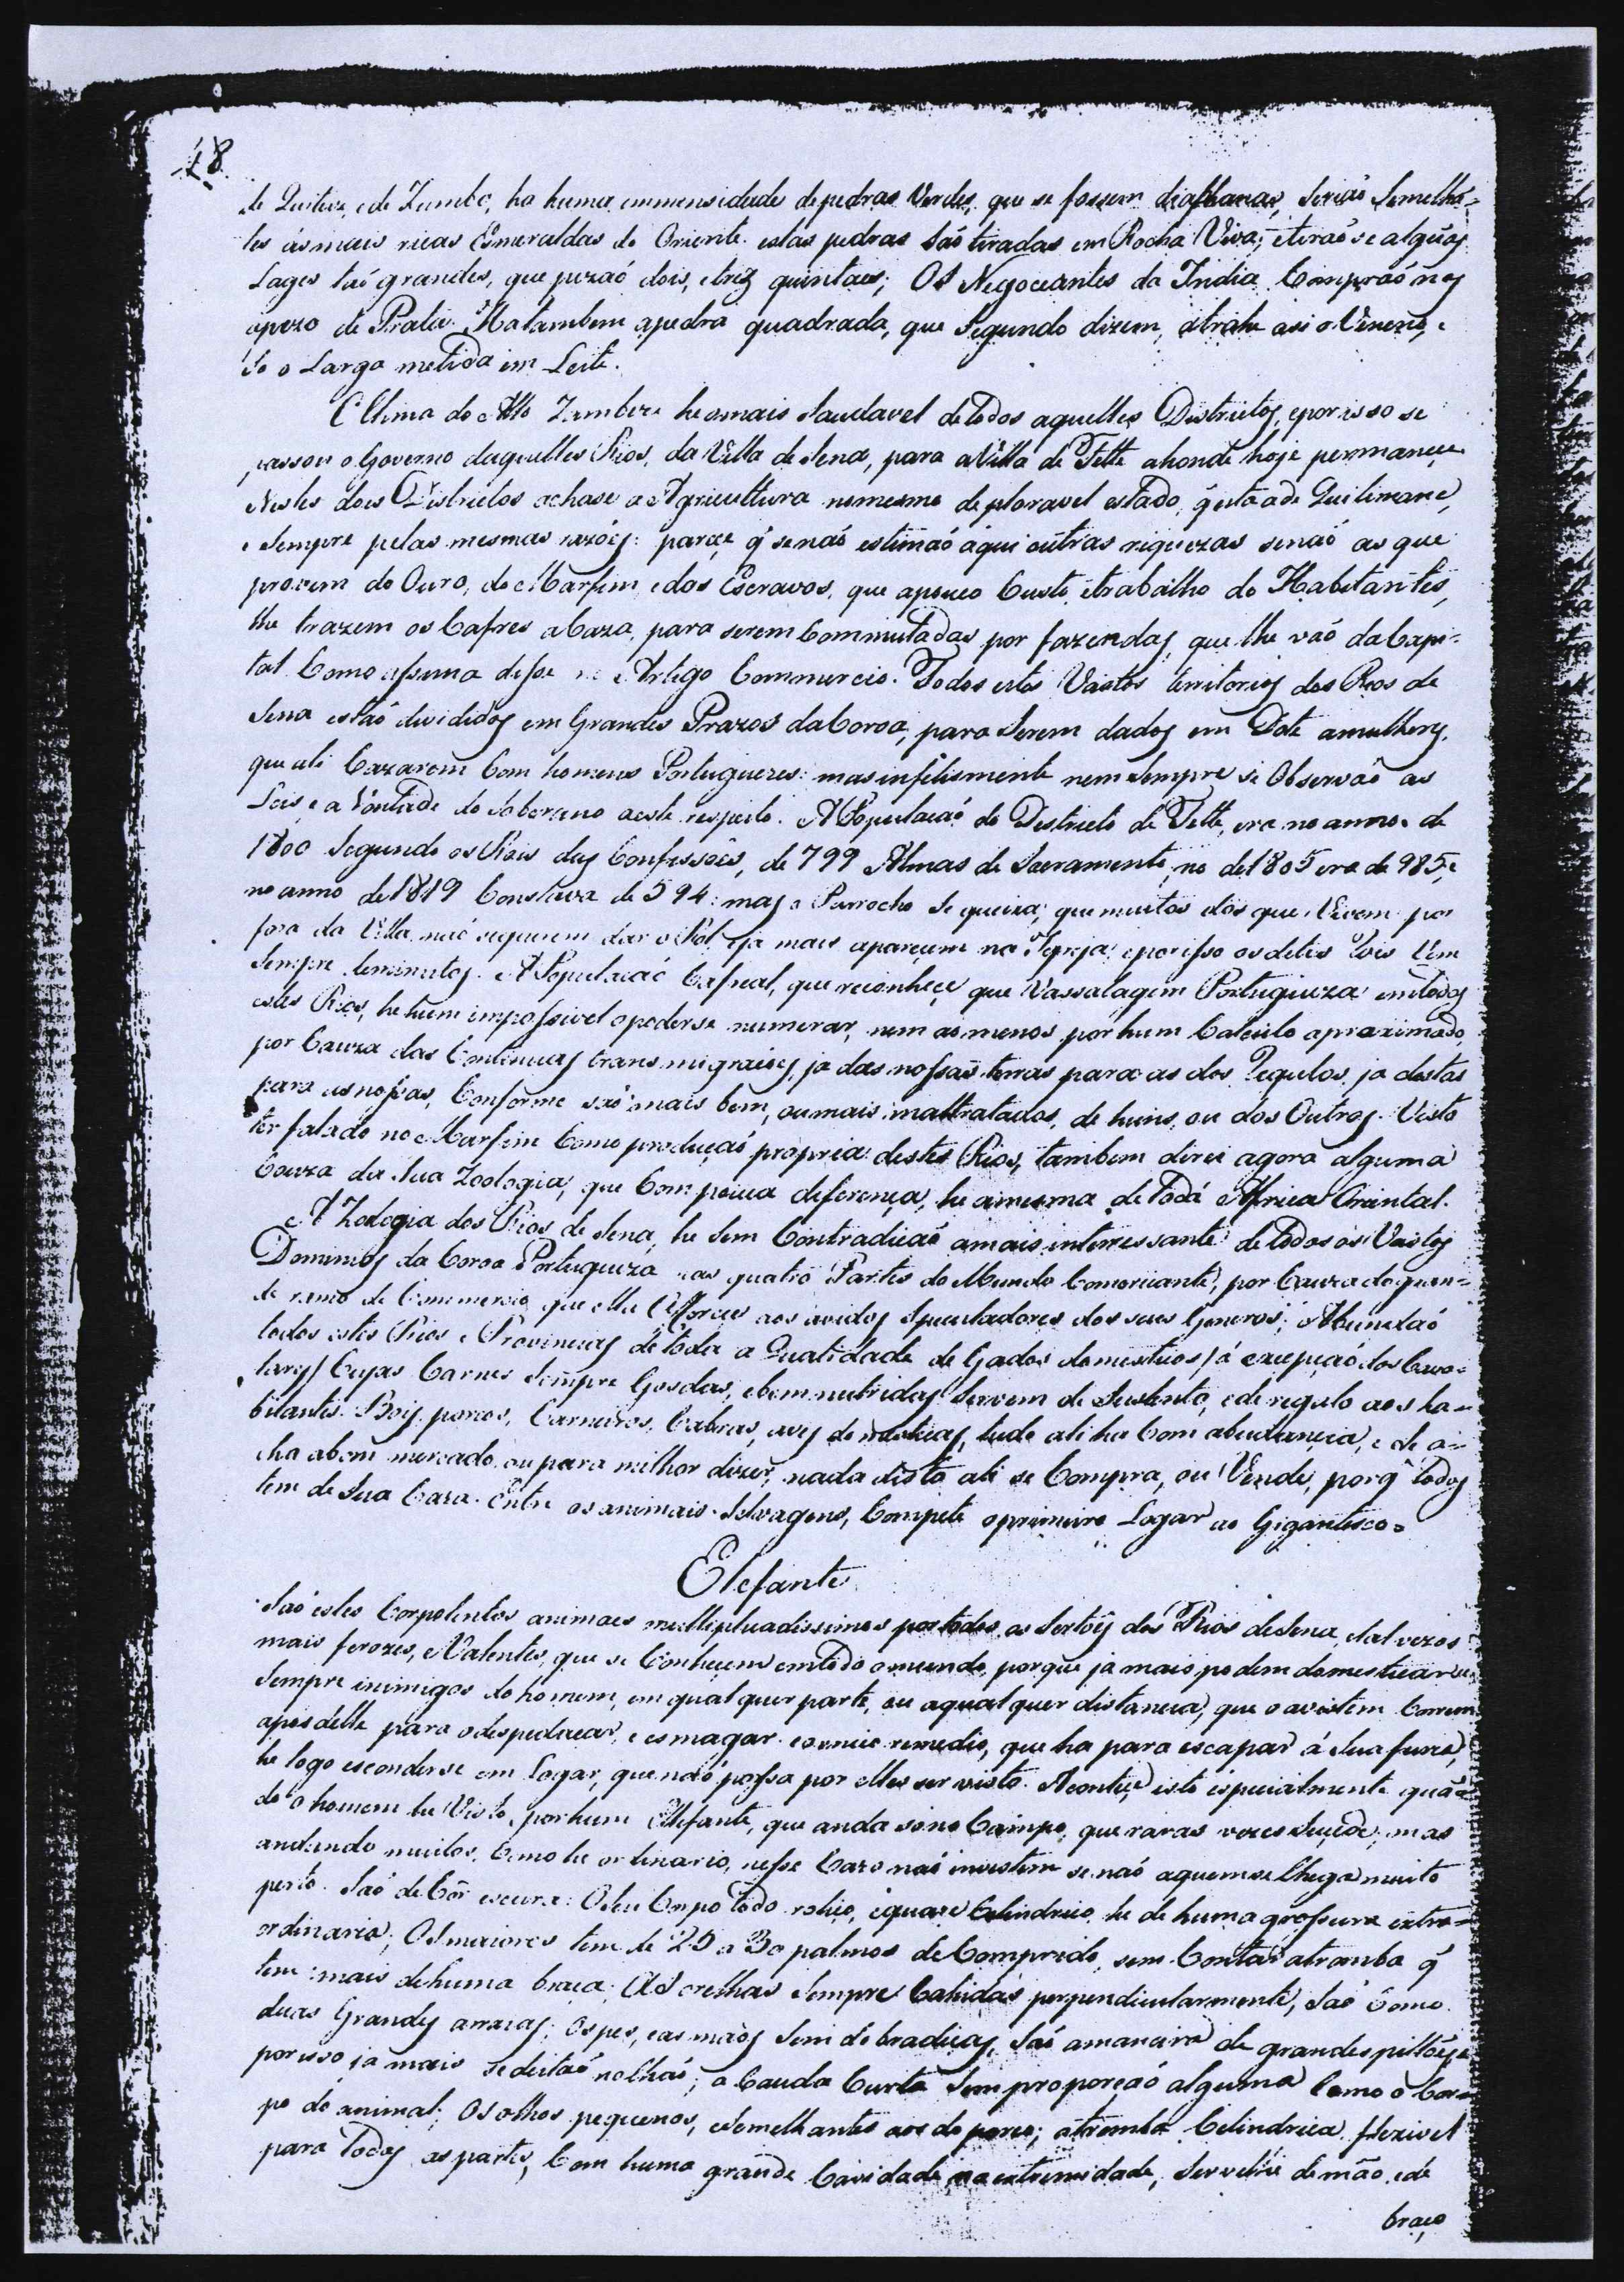 18.
de Quiteve, e de Zumbo, ha huma immensidade de pedras Verdes, que se fossem diafhanas, seriaõ Semelhã-
tes ás mais ricas Esmeraldas do Oriente. estas pedras saõ tiradas em Rocha Viva; e tiraõse algũas
Lages taõ grandes, que pezaõ dois, e trez quintaes; Os Negoceantes da India Compraõ nas
apezo de Prata. Ha tambem a pedra quadrada, que Segundo dizem, atrahe asi o Veneno, e
so o Larga metida em Leite.
O Clima do Alto Zambeze he o mais Saudavel de todos aquelles Districtos, e por isso se
passou o Governo daquelles Rios, da Villa de Sena, para a Villa de Tette ahonde hoje permanece
Nestes dois Districtos achase a Agricultura no mesmo deploravel estado, q̃ esta a de Quilimane,
e Sempre pelas mesmas razões: parece q̃ se naõ estimaõ aqui outras riquezas senaõ as que
provem do Ouro, do Marfim, e dos Escravos, que apouco Custo, e trabalho do Habitantes,
lhe trazem os Cafres a Caza, para serem Commutadas por fazendas, que lhe vaõ da Capi-
tal Como assima disse no Artigo Commercio. Todos estes Vastos territorios dos Rios de
Sena estaõ divididos em Grandes Prazos da Coroa, para Serem dados em Dote a mulheres,
que ali Cazarem Com homens Portuguezes: mas infelismente nem Sempre se Observaõ as
Leis, e a Vontade do Soberano aeste respeito. A Populaçaõ do Districto de Tette, era no anno de
1800 Segundo os Rois das Confissões, de 799 Almas de Sacramento, no de 1805 era de 985, e
no anno de 1819 Constava de 594: mas o Parrocho se queixa, que muitos dos que Vivem por
fora da Villa naõ querem dar o Rol, e ja mais aparecem na Igreja; e por isso os detes Rois Vem
Sempre Deminutos. A Populaçaõ Cafreal, que reconhece que Vassalagem Portugueza em todos
estes Rios, he hum impossivel o poderse numerar, nem ao menos por hum Calculo aproximado,
por Cauza das Continuas transmigraições, ja das nossas terras para as dos Regulos, ja destas
para as nossas, Conforme saõ mais bem, ou mais maltratados, de huns, ou dos Outros. Visto
ter falado no Marfim Como producçaõ propria destes Rios, tambem direi agora alguma
Couza da Sua Zoologia, que Com pouca diferença, he a mesma de Toda Africa Oriental.
A Zoologia dos Rios de Sena, he Sem Contradicaõ a mais interressante de todos os Vastos
Dominios da Coroa Portugueza nas quatro Partes do Mundo Comerciante, por Cauza do gran-
de ramo de Commercio, que ella Offerece aos avidos Speculadores dos seus Generos; Abundaõ
todos estes Rios e Provincias de toda a Qualidade de Gados domesticos / á excepçaõ dos Cava-
lares / Cujas Carnes Sempre Gordas, e bem nutridas Servem de Sustento, e de regalo aos ha-
bitantes. Bois, porcos, Carneiros, Cabras, aves domesticas, tudo ali ha Com abundancia, e se a-
cha abom mercado, ou para milhor dizer, nada disto ali se Compra, ou Vende, porq̃ todos
tem de Sua Caza. Entre os animais Selvagens, Compete o primeiro Lugar ao Gigantesco=
Elefante
Saõ estes Corpolentos animaes multiplicadissimos por todos os Sertões dos Rios de Sena, e tal vez os
mais ferozes, e Valentes, que se Conhecem em todo o mundo, porque ja mais podem domesticar-se
Sempre inimigos do homem, em qualquer parte, ou aqualquer distancia, que o avistem Correm
apos delle para o despedaçar, e esmagar. e o unico remedio, que ha para escapar á Sua furia,
he logo esconderse em Lugar, que naõ possa por elles ser visto. Acontece isto especialmente quã-
do o homem he Visto por hum Elefante, que anda só no Campo, que raras vezes Sucede; mas
andando muitos, Como he ordinario, nesse Cazo naõ investem se naõ aquem se Chega muito
perto. Saõ de Cor escura: O Seu Corpo Todo roliço, e quaze Celindrico, he de huma grossura extra-
ordinaria; Os maiores tem de 25 a 30 palmos de Comprido, sem Contar a tromba q̃
tem mais de huma braça; As orelhas Sempre Cahidas perpendicularmente, Saõ Como
duas Grandes arraias; Os pes, e as mãos Sem dobradiças, Saõ amaneira de grandes pillões, e
por isso ja mais se deitaõ no chaõ; a Cauda Curta Sem proporçaõ alguma Como o Cor-
po do animal; Os olhos pequenos, e Semelhantes aos do porco; a tromba Celindrica, flexivel
para Todas as partes, Com huma grande Cavidade na extremidade, Servelhe de mão, e de
braço